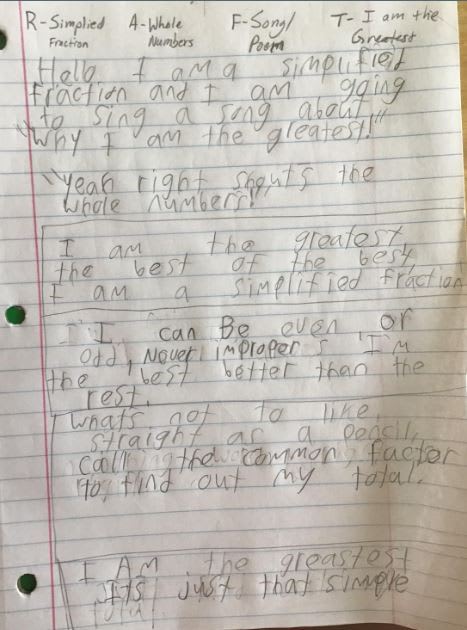 R- Simplied A- Whole F- Song/ T- I am the
Fraction Numbers Poem Greatest
Hello I am a simplified
fraction and I am going
to sing a song about
"Why I am the gleatest!"
"Yeah right shouts the
whole numbers!"
I am the greatest,
the best of the best,
I am a simplified fraction
I can Be even or
odd, Never improper I'm
the best better than the
rest.
Whats not to like,
straight as a pencil,
calling the common factor
to find out my total.
I AM the greastest
Its just that simple